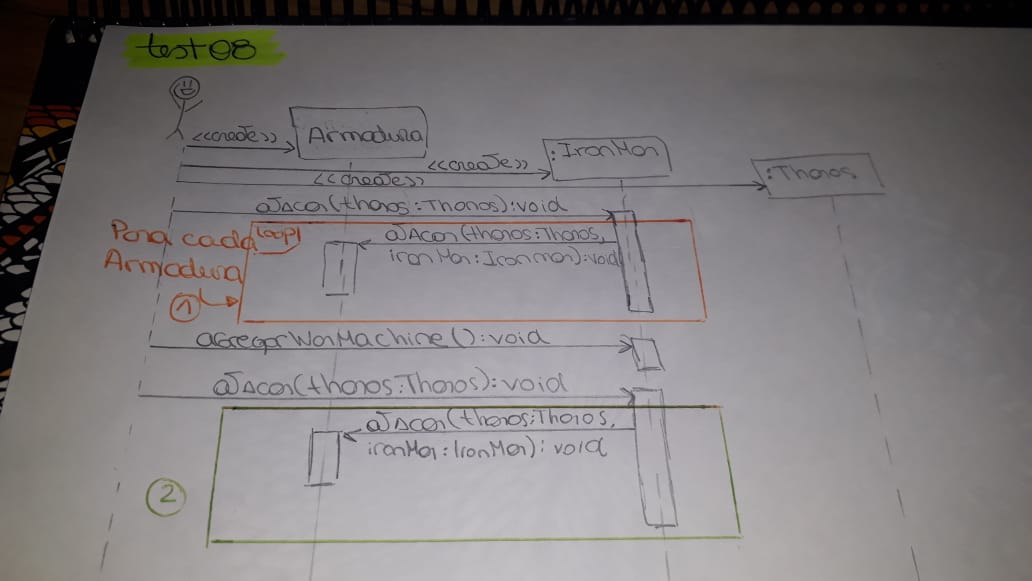 test08
<<create>>
Armadura
<<create>>
:IronMan
<<create>>
:Thanos
atacar(thanos:Thanos):void
Para cada
Armadura
1
Loop
atacar(thanos:Thanos,
ironMan:IronMan):void
agregarWarMachine():void
atacar(thanos:Thanos):void
2
atacar(thanos:Thanos,
ironMan:IronMan):void